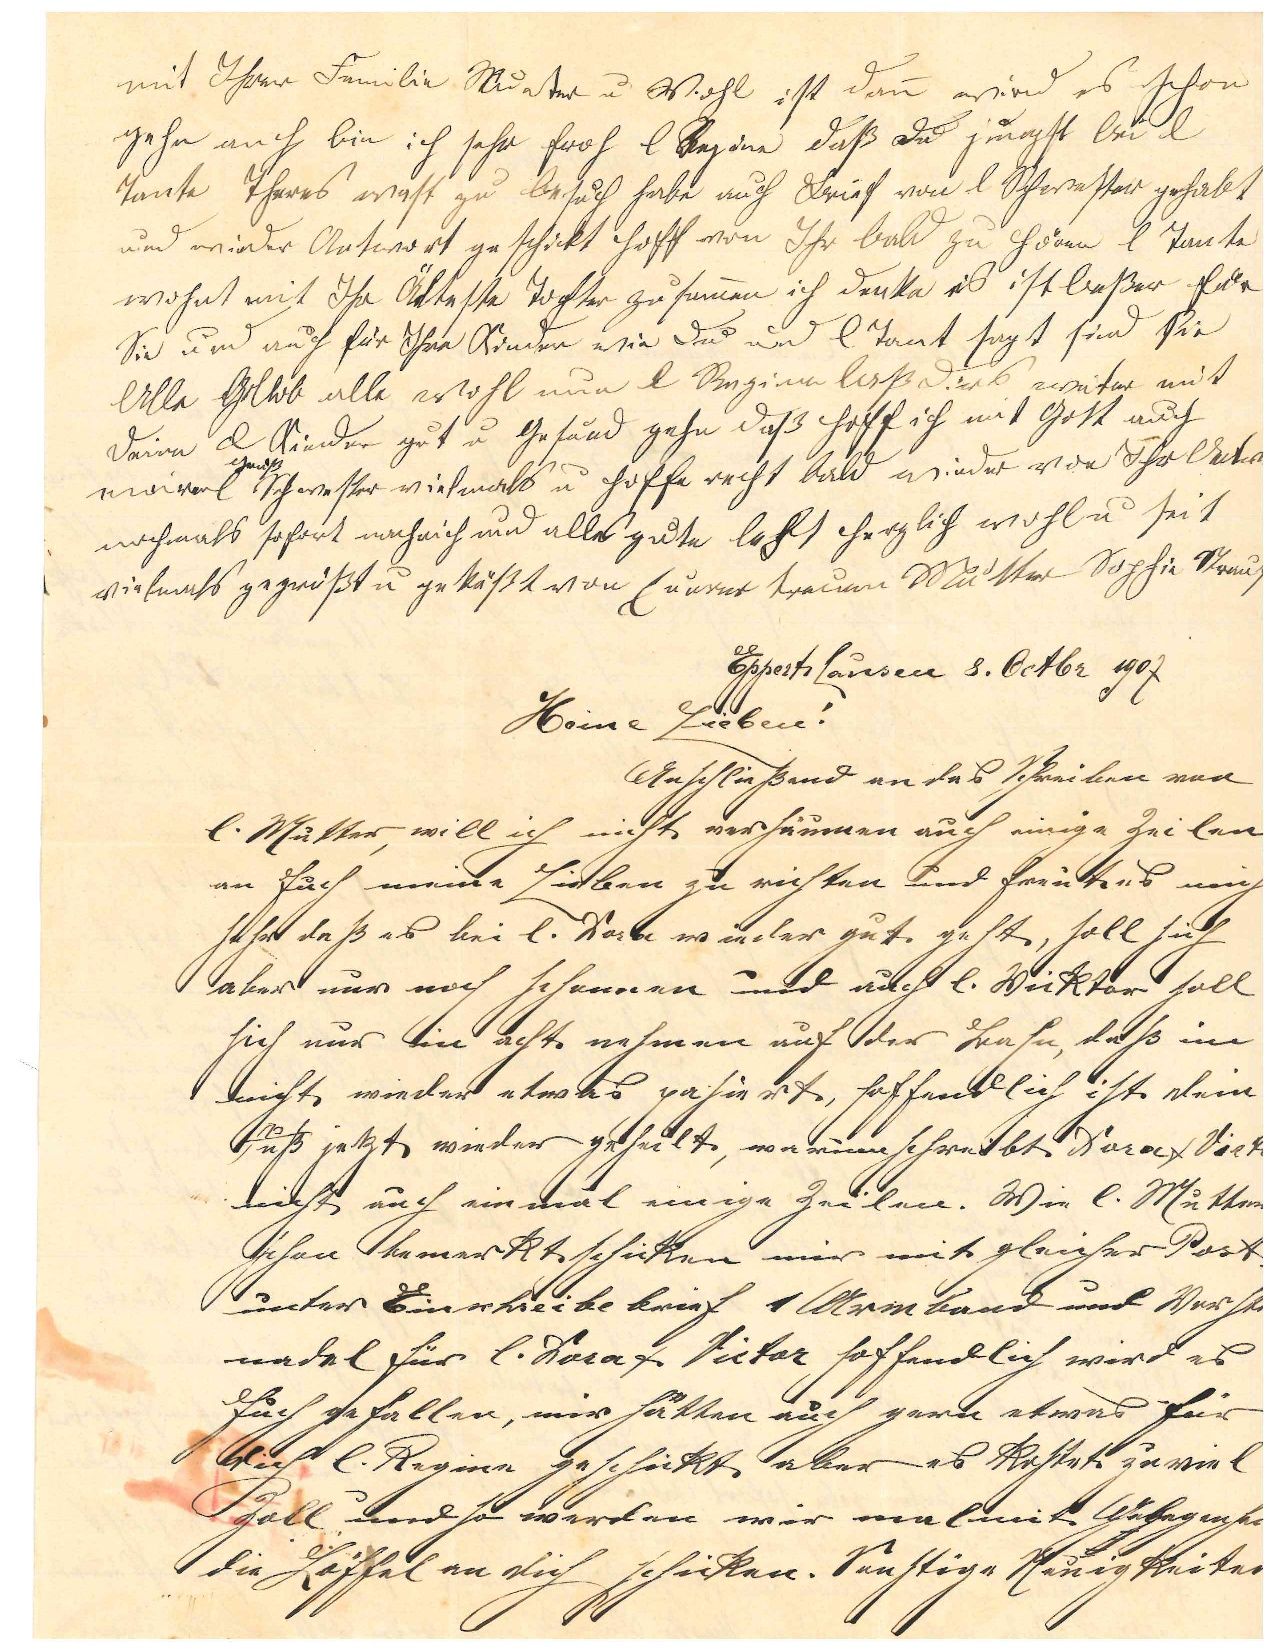 mit Ihrer Familie Munter u Wohl ist dan̄ wird es schon
gehn auch bin ich sehr froh l Regine daß Du jüngst bei l
Tante Theres warst zu besuch habe auch Brief von l Schwester gehabt
und wieder Antwort geschickt hoff von Ihr bald zu hören l Tante
wohnt mit Ihr Älteste Tochter zusam̄en ich denke es ist beßer für
Sie und auch für Ihre Kinder wie Du und l Tant sagt sind Sie
Alle Gottlob alle wohl nun l Regina laß Dirs weiter mit
Deine l Kinder gut u Gesund gehn daß hoff ich mit Gott auch
meine l grüß Schwester vielmals u hoffe recht bald wieder von Ihr Antw
nochmals sofort nachrich und alles gute lebt herzlich wohl u seit
vielmals gegrüßt u geküßt von Euerer treuen Mutter Sophie Strauß
Eppertshausen 8. Octbr 1907
Meine Lieben!
Anschließend an das Schreiben von
l. Mutter, will ich nicht versäumen auch einige Zeilen
an Euch meine Lieben zu richten und freut es mich
sehr daß es bei l. Dora wieder gut geht, soll sich
aber nur noch schonnen und auch l. Vicktor soll
sich nur in acht nehmen auf der Bahn, daß im
nicht wieder etwas pasiert, hoffendlich ist dein
Fuß jetzt wieder geheilt, warum schreibt Dora & Vict
nicht auch einmal einige Zeilen. Wie l. Mutter
schon bemerkt schicken mir mit gleicher Post
unter Einschreibebrief 1 Armband und Vorste
nadel für l. Dora & Victor hoffendlich wird es
Euch gefallen, mir hätten auch gern etwas für
dich l. Regine geschickt aber es kostet zu viel
Zoll und so werden wir mal mit Gelegenhei
die Löffel an dich schicken. Sonstige Neuigkeiten